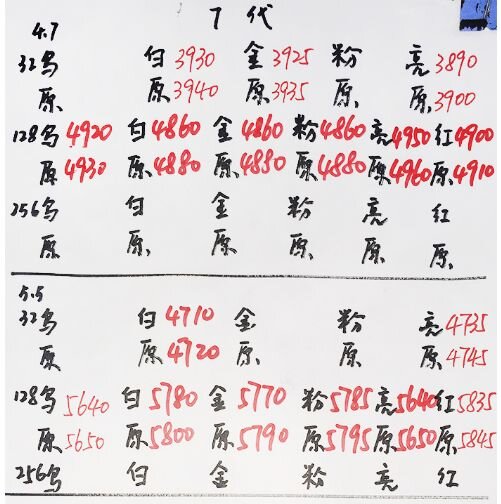 7代
4.7
32乌 白3930 金3925 粉 亮3890
原 原3940 原3935 原 原3900
128乌4920 白4860 金4860 粉4860 亮4950 红4900
原4930 原4880 原4880 原4880 原4960 原4910
256乌 白 金 粉 亮 红
原 原 原 原 原 原
5.5
32乌 白4710 金 粉 亮4735
原 原4720 原 原 原4745
128乌5640 白5780 金5770 粉5785 亮5640 红5835
原5650 原5800 原5790 原5795 原5650 原5845
256乌 白 金 粉 亮 红